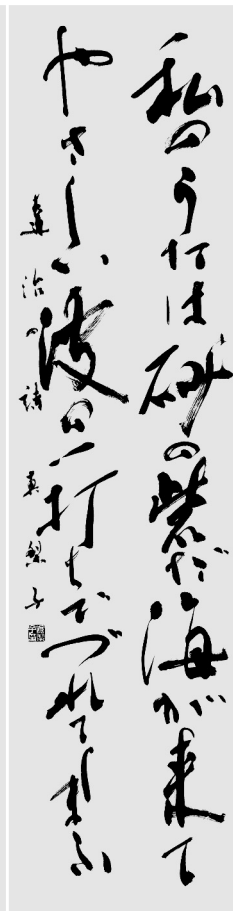 私のうたは砂の砦だ海が来て
やさしい波の一打ちでづれてしまふ
達治の詩 真梨子